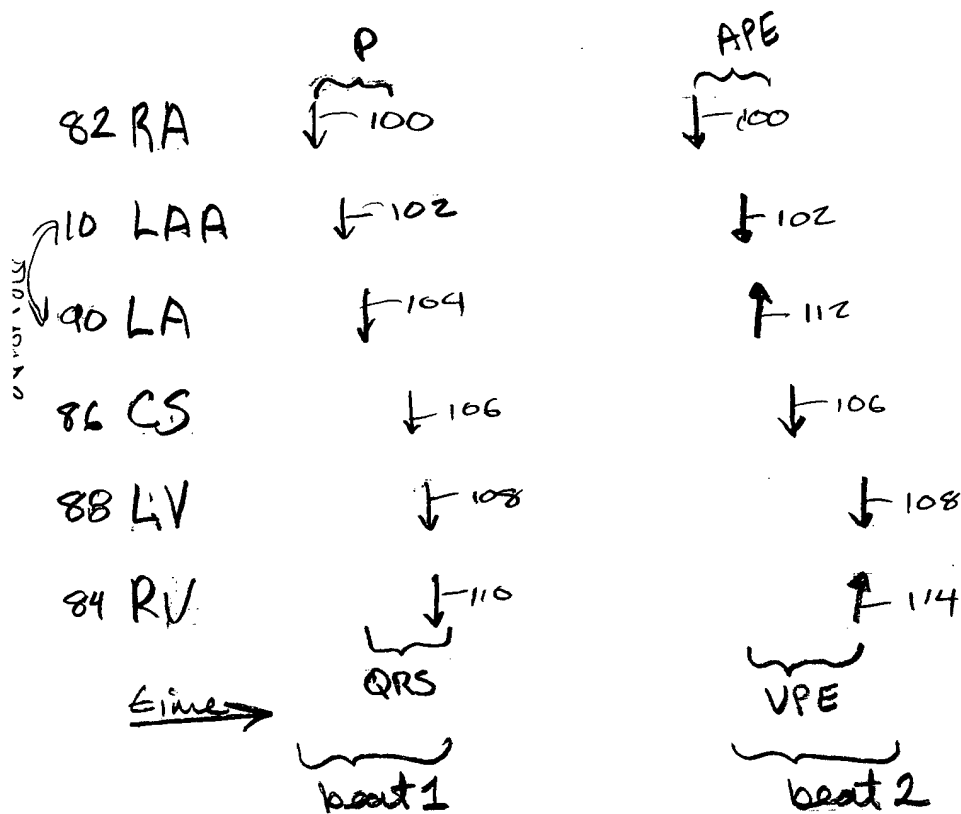 P APE
82 RA 100 100
10 LAA 102 102
90 LA 104 112
86 CS 106 106
88 LV 108 108
84 RV 110 114
QRS VPE
time
beat 1 beat 2